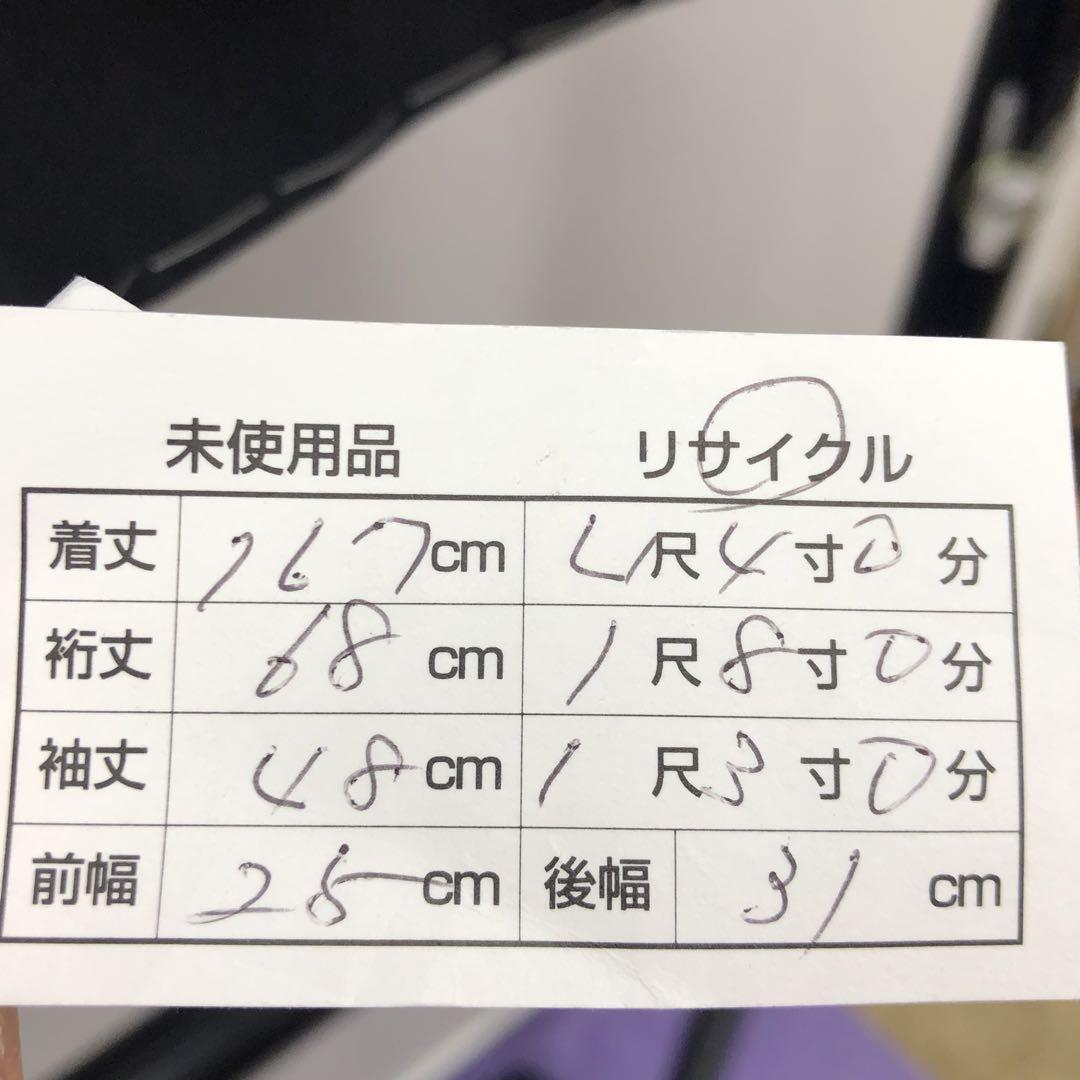 未使用品 リサイクル
着丈 167cm 4尺4寸0分
裄丈 68cm 1尺8寸0分
袖丈 48cm 1尺3寸0分
前幅 25cm 後幅 31cm